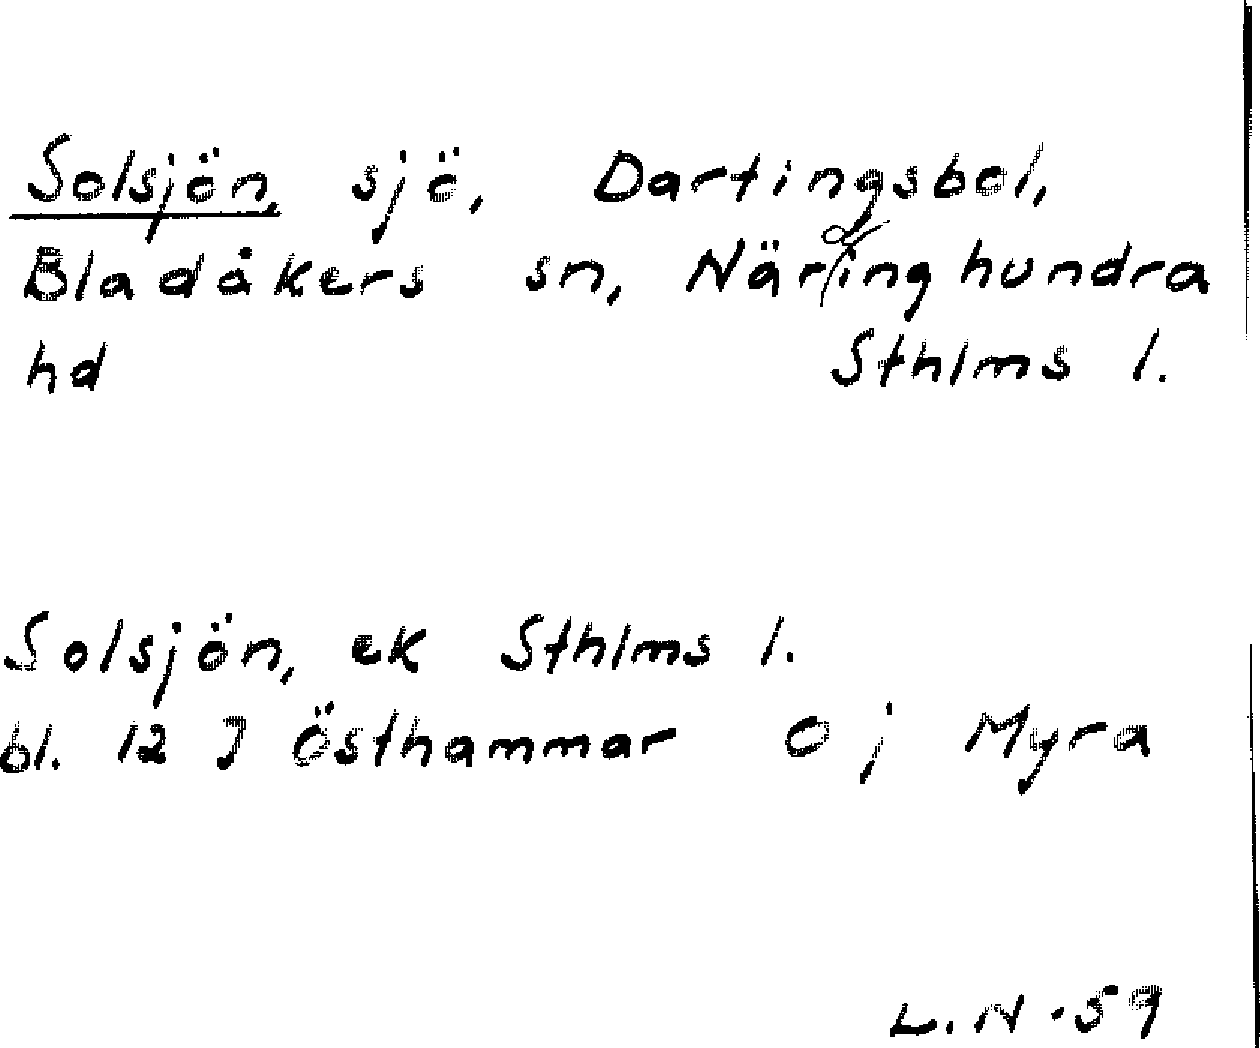 Solsjön, sjö, Dartingsbol,
Bladåkers sn, Närdinghundra
hd Sthlms l.
Solsjön, ek Sthlms l.
bl. 12 J Östhammar O j Myra
L.N.59